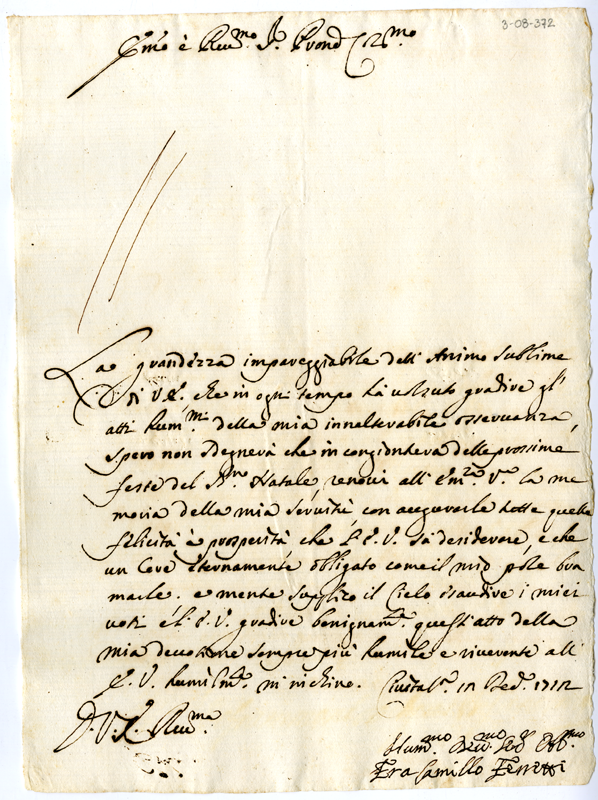 3-08-372
Emo è Reu.mo S.r Pron.
La grandezza impareggiabile dell' Animo sublime
di V.E. che in ogni tempo hà uoluto gradire gl'
atti hum.mi della mia innalterabile osseruanza,
spero non sdegnerà che in congiuntura delle prossime
feste del S.mo Natale, renoui all' Em.za V.a la me
moria della mia seruitù, con augurarle tutte quelle
felicità è prosperità che l' E.V. sà desiderare, e che
un Core eternamente obligato come il mio pole bra
marle. e mentre supplico il Cielo esaudire i miei
uoti è l' E.V. gradire benignam.te quest'atto della
mia deuozione sempre più humile e riuerente all'
E.V. humilm.te m'inchino. Ciuitau.a 12 Dec. 1712
D. V. E. Reu.ma
Hum.mo Deu.mo Ser. Obb.mo
Fra Camillo Ferretti